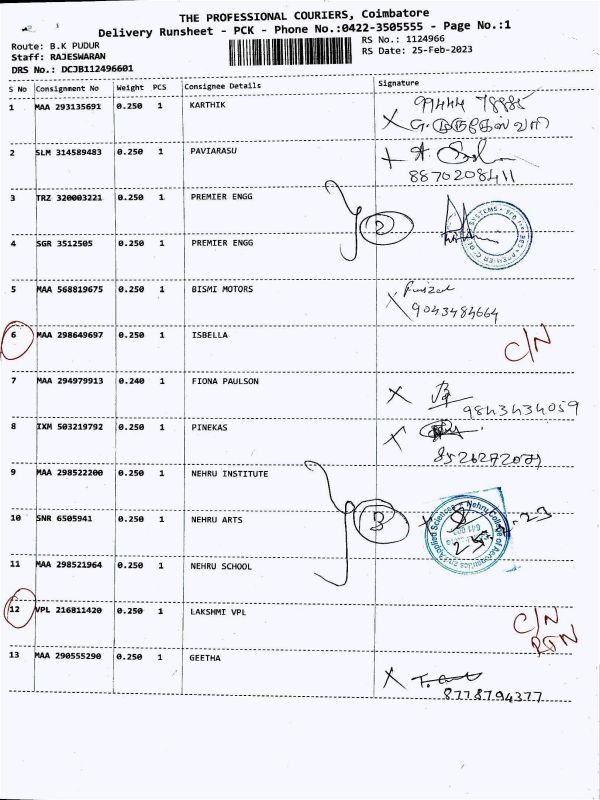 THE PROFESSIONAL COURIERS, Coimbatore
Delivery Runsheet - PCK - Phone No.:0422-3505555 - Page No.:1
Route: B.K PUDUR
RS No.: 1124966
Staff: RAJESWARAN
RS Date: 25-Feb-2023
DRS No.: DCJB112496601
S No Consignment No Weight PCS Consignee Details Signature
1 MAA 293135691 0.250 1 KARTHIK
2 SLM 314589483 0.250 1 PAVIARASU
8870208411
3 TRZ 320003221 0.250 1 PREMIER ENGG
2
4 SGR 3512505 0.250 1 PREMIER ENGG
5 MAA 568819675 0.250 1 BISMI MOTORS
9043484664
6 MAA 298649697 0.250 1 ISBELLA C/N
7 MAA 294979913 0.240 1 FIONA PAULSON
9843434059
8 IXM 503219792 0.250 1 PINEKAS
9 MAA 298522200 0.250 1 NEHRU INSTITUTE
3
10 SNR 6505941 0.250 1 NEHRU ARTS
11 MAA 298521964 0.250 1 NEHRU SCHOOL
12 VPL 216811420 0.250 1 LAKSHMI VPL C/N
RTN
13 MAA 290555290 0.250 1 GEETHA
8778794377